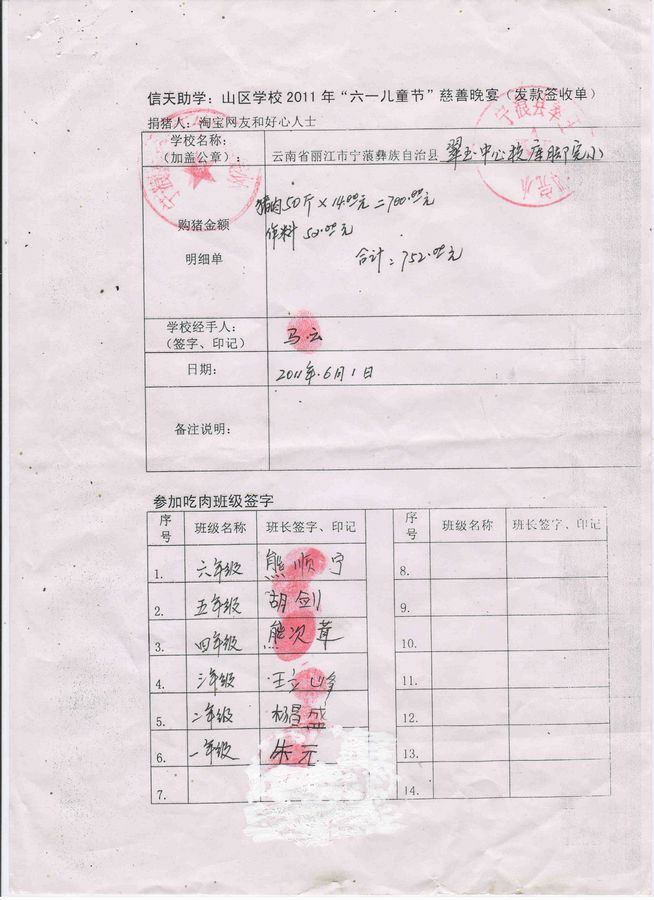 信天助学：山区学校2011年“六一儿童节”慈善晚宴（发款签收单）
捐猪人：淘宝网友和好心人士
学校名称：
（加盖公章）：
云南省丽江市宁蒗彝族自治县 翠玉中心校库脚完小
购猪金额
明细单
猪肉50斤×14.00元=700.00元
作料 52.00元
合计：752.00元
学校经手人：
（签字、印记）
马云
日期：
2011年.6月1日
备注说明：
参加吃肉班级签字
序号 班级名称 班长签字、印记 序号 班级名称 班长签字、印记
1. 六年级 熊顺宁 8.
2. 五年级 胡剑 9.
3. 四年级 熊次茸 10.
4. 三年级 王立峰 11.
5. 二年级 杨昌盛 12.
6. 一年级 朱元 13.
7. 14.